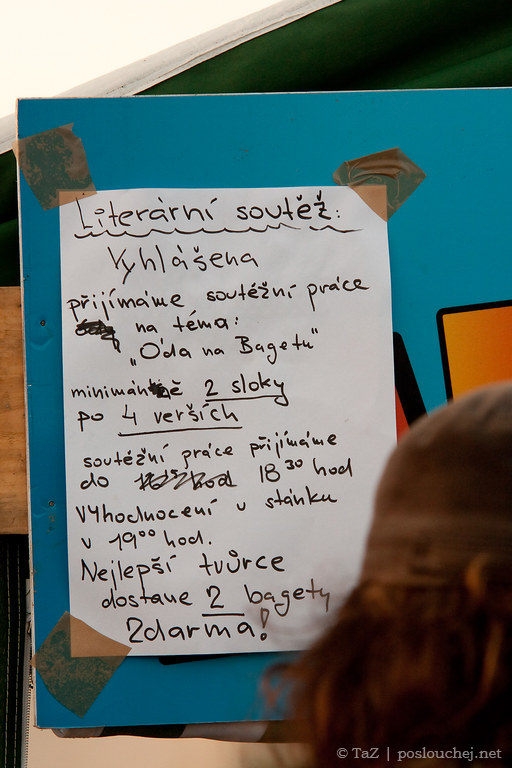 Literární soutěž:
Vyhlášena
přijímáme soutěžní práce
na téma:
„Óda na Bagetu"
minimálně 2 sloky
po 4 verších
soutěžní práce přijímáme
do 18³⁰ hod
Vyhodnocení v stánku
v 19⁰⁰ hod.
Nejlepší tvůrce
dostane 2 bagety
Zdarma!
© TaZ | poslouchej.net